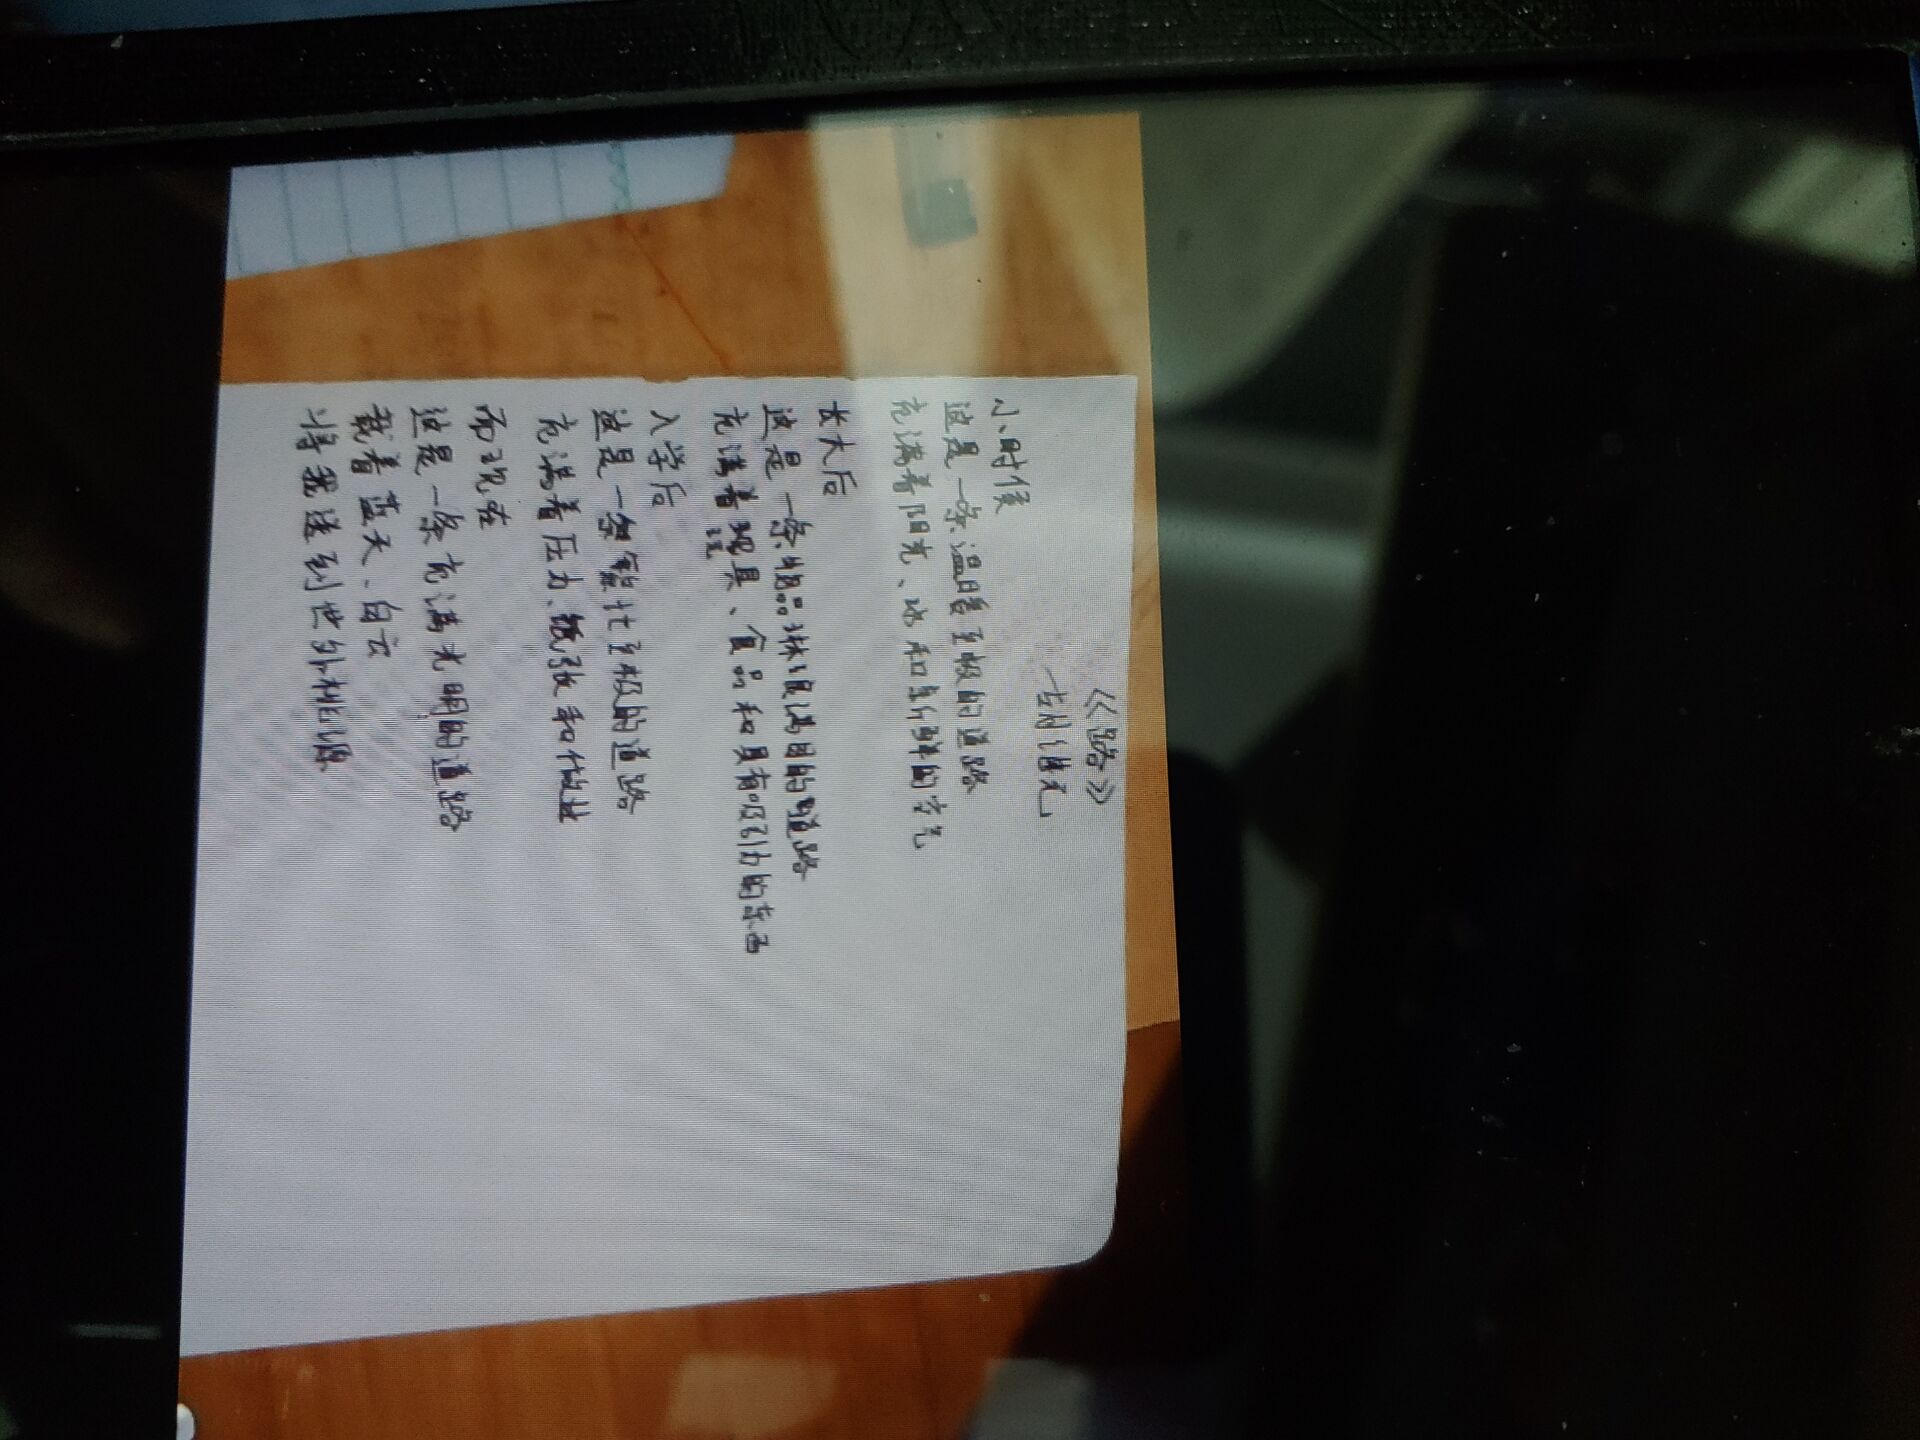 《路》
小时候
这是一条温暖至极的道路
充满着阳光、水和新鲜的空气
长大后
这是一条物品琳琅满目的道路
充满着玩具、食品和具有吸引力的东西
入学后
这是一条繁忙至极的道路
充满着压力、紧张和作业
而现在
这是一条充满光明的道路
载着蓝天、白云
将我送到世外桃源